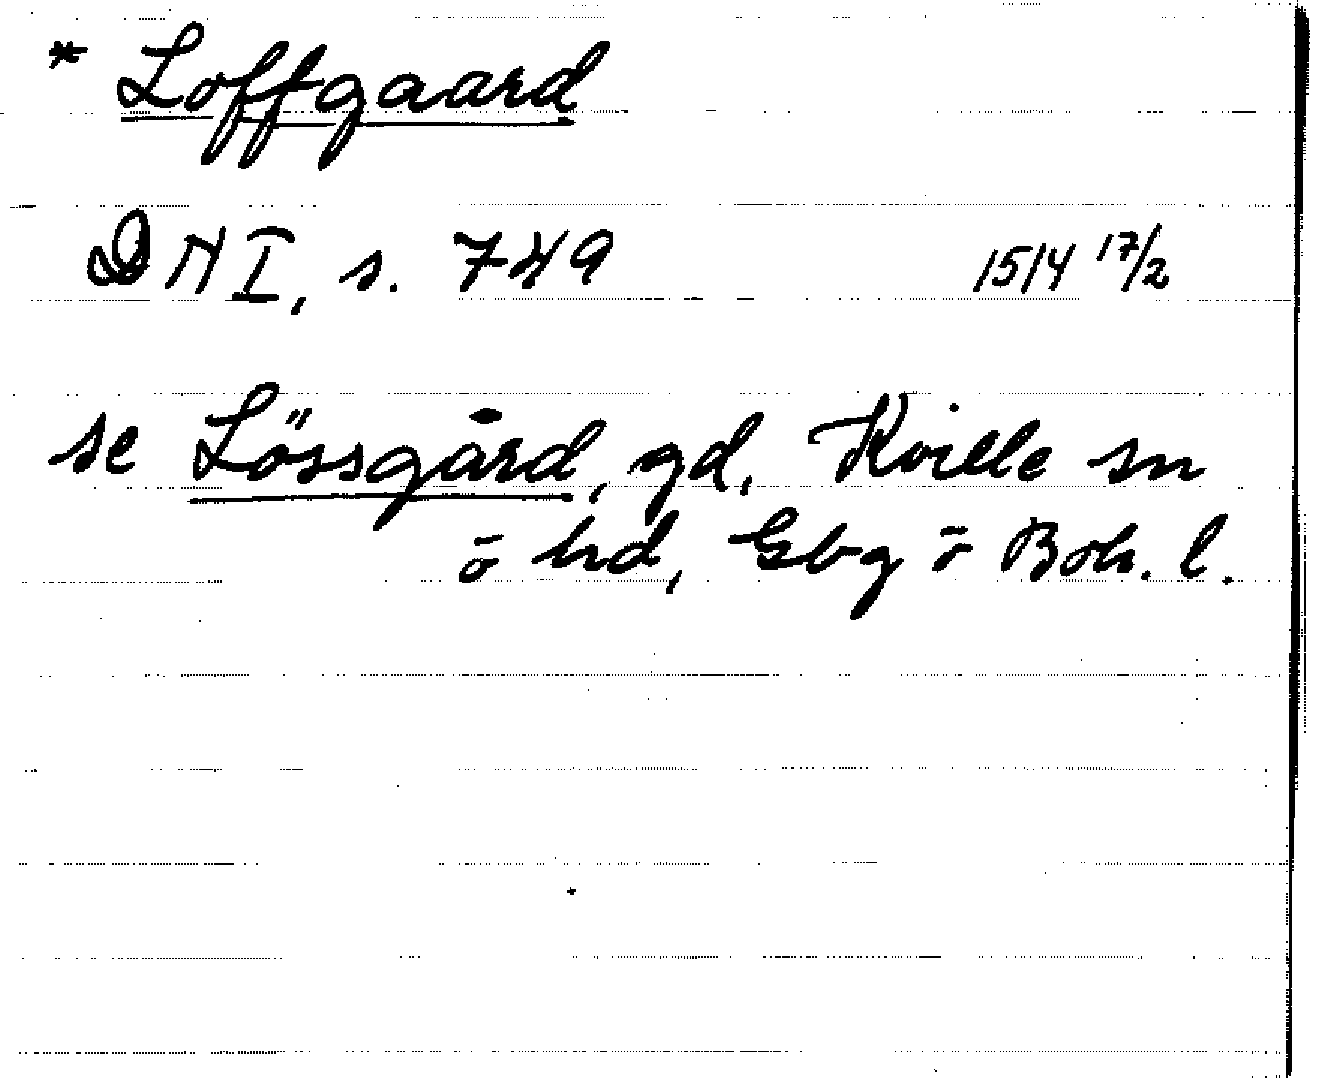 * Loffgaard
DN I, s. 749 1514 17/2
se Lössgård, gd, Kville sn
o hd, Gbg o Boh. l.